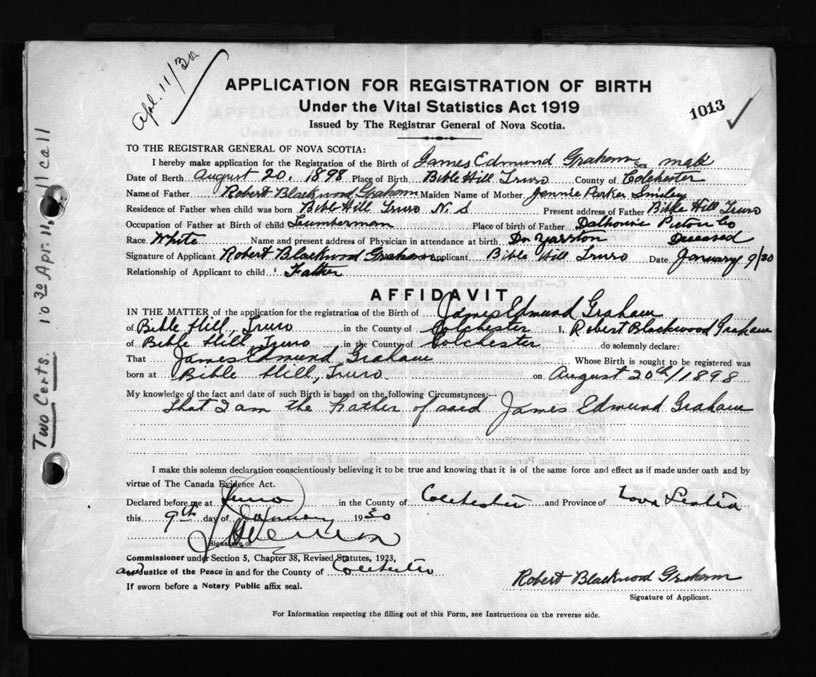 Apl. 11/30
APPLICATION FOR REGISTRATION OF BIRTH
Under the Vital Statistics Act 1919
1013
Issued by The Registrar General of Nova Scotia.
TO THE REGISTRAR GENERAL OF NOVA SCOTIA:
I hereby make application for the Registration of the Birth of James Edmund Graham Sex male
Date of Birth August 20, 1898 Place of Birth Bible Hill Truro County of Colchester
Name of Father Robert Blackwood Graham Maiden Name of Mother Jennie Parker Smiley
Residence of Father when child was born Bible Hill Truro N. S Present address of Father Bible Hill Truro
Occupation of Father at Birth of child Lumberman Place of birth of Father Dalhousie Pictou Co
Race. White Name and present address of Physician in attendance at birth Dr Yorston Deceased
Signature of Applicant Robert Blackwood Graham Applicant Bible Hill Truro Date January 9/30
Relationship of Applicant to child Father
AFFIDAVIT
IN THE MATTER of the application for the registration of the Birth of James Edmund Graham
of Bible Hill, Truro in the County of Colchester I, Robert Blackwood Graham
of Bible Hill, Truro in the County of Colchester do solemnly declare:
That James Edmund Graham Whose Birth is sought to be registered was
born at Bible Hill, Truro on August 20th/1898
My knowledge of the fact and date of such Birth is based on the following Circumstances:—
That I am the Father of said James Edmund Graham
I make this solemn declaration conscientiously believing it to be true and knowing that is of the same force and effect as if made under oath and by
virtue of The Canada Evidence Act.
Declared before me at Truro in the County of Colchester and Province of Nova Scotia
this 9th day of January 1930
Signature of
Commissioner under Section 5, Chapter 38, Revised Statutes, 1923,
and Justice of the Peace in and for the County of Colchester
If sworn before a Notary Public affix seal.
Robert Blackwood Graham
Signature of Applicant.
For Information respecting the filling out of this Form, see Instructions on the reverse side.
Two Certs.